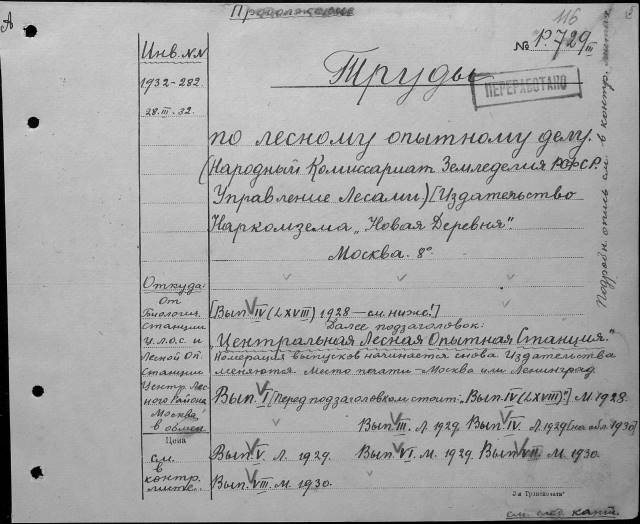 А
Продолжение
116
5
№ Р.729 III
Инв. №№
1932-282
28.III.32.
Труды
ПЕРЕРАБОТАНО
по лесному опытному делу.
(Народный Комиссариат Земледелия РСФСР.
Управление Лесами) [Издательство
Наркомзема „Новая Деревня".
Москва. 8°
Подробн. опись см. в контр. листах
Откуда:
От
Биология.
Станции
Ц.Л.О.С. и
Лесной Оп.
Станции
Центр. Лес
ного Района
Москва,
в обмен
[Вып. IV (LXVIII) 1928 — см. ниже!]
Далее подзаголовок:
„Центральная Лесная Опытная Станция."
Номерация выпусков начинается снова. Издательства
меняются. Место печати – Москва или Ленинград.
Вып. I [Перед подзаголовком стоит: „Вып. IV (LXVIII)"] М. 1928.
Вып. III. Л. 1929. Вып. IV. Л. 1929 [на обл. 1930]
Цена
см.
в
контр.
листе.
Вып. V. Л. 1929. Вып. VI. М. 1929. Вып. VII. М. 1930.
Вып. VIII. М. 1930.
см. след. карт.